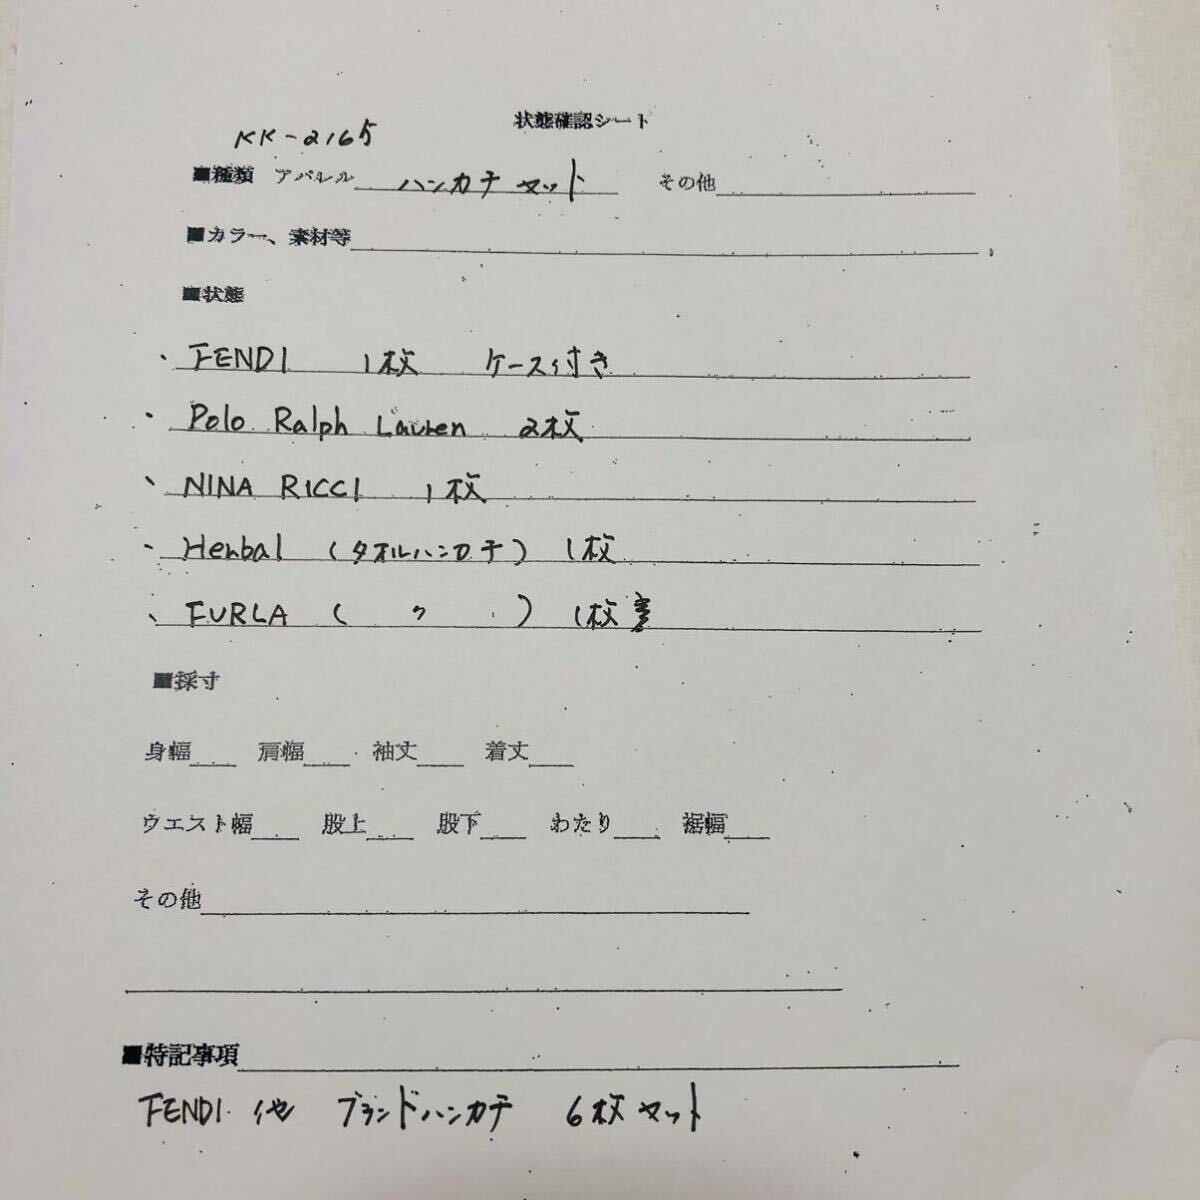 状態確認シート
KK-2165
■種類 アパレル ハンカチセット その他
■カラー、素材等
■状態
・FENDI 1枚 ケース付き
・Polo Ralph Lauren 2枚
、NINA RICCI 1枚
・Herbal (タオルハンカチ) 1枚
、FURLA ( 〃 ) 1枚
■採寸
身幅 肩幅 袖丈 着丈
ウエスト幅 股上 股下 わたり 裾幅
その他
■特記事項
FENDI 他 ブランドハンカチ 6枚セット